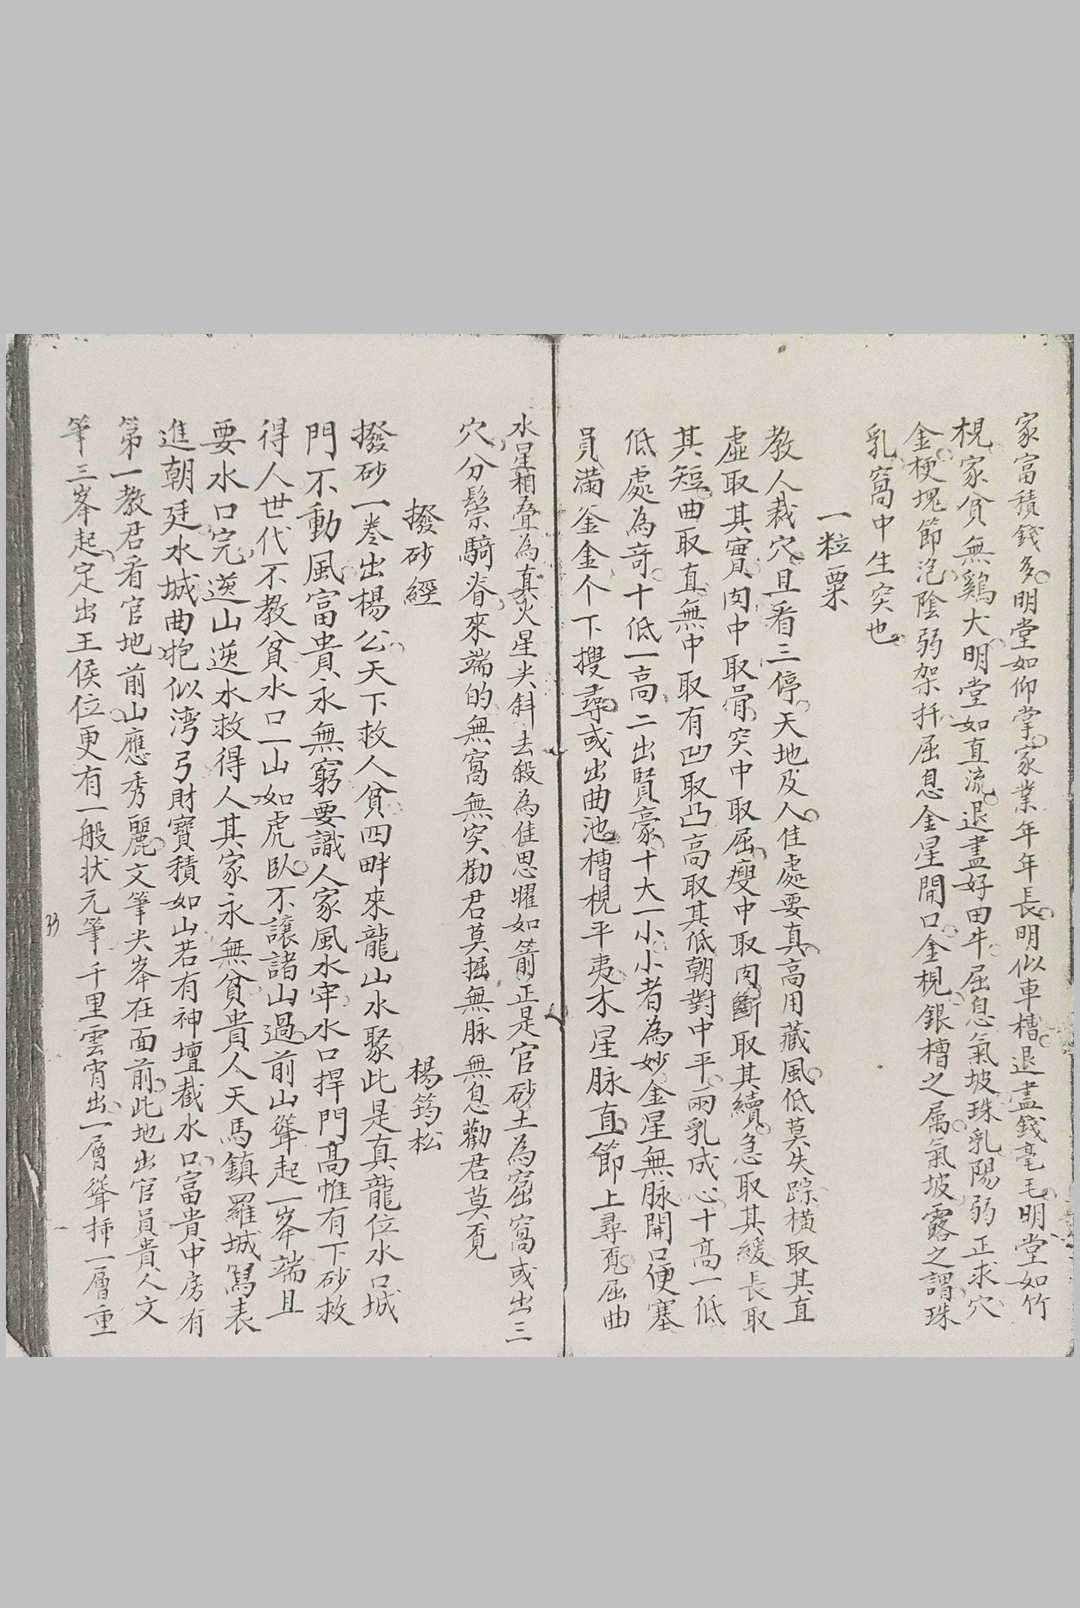 家富積錢多明堂如仰掌家業年年長明似車槽退盡錢毫毛明堂如竹
梘家貧無鷄犬明堂如直流退盡好田牛屈息氣坡珠乳陽弱正求穴
金梗塊節泡陰弱架扦屈息金星開口金梘銀槽之属氣坡露之謂珠
乳窩中生突也
一粒粟
教人裁穴且看三停天地及人住處要真高用藏風低莫失踪橫取其直
虛取其實肉中取骨突中取屈瘦中取肉斷取其續急取其緩長取
其短曲取直無中取有凹取凸高取其低朝對中平兩乳成心十高一低
低處為竒十低一高二出賢豪十大一小小者為妙金星無脉開口便塞
員滿釜金个下搜尋或出曲池槽梘平夷木星脉直節上尋覔屈曲
水星相叠為真火星尖斜去殺為佳思曜如箭正是官砂土為窟窩或出三
穴分鬃騎脊來端的無窩無突勸君莫掘無脉無息勸君莫覔
撥砂經 楊筠松
撥砂一卷出楊公天下救人貧四畔來龍山水聚此是真龍位水口城
門不動風富貴永無窮要識人家風水牢水口捍門高惟有下砂救
得人世代不教貧水口一山如虎臥不讓諸山過前山聳起一峯端且
要水口完逆山逆水救得人其家永無貧貴人天馬鎮羅城冩表
進朝廷水城曲抱似湾弓財寶積如山若有神壇截水口富貴中房有
第一教君看官地前山應秀麗文筆尖峯在面前此地出官員貴人文
筆三峯起定出王侯位更有一般状元筆千里雲霄出一層聳揷一層重